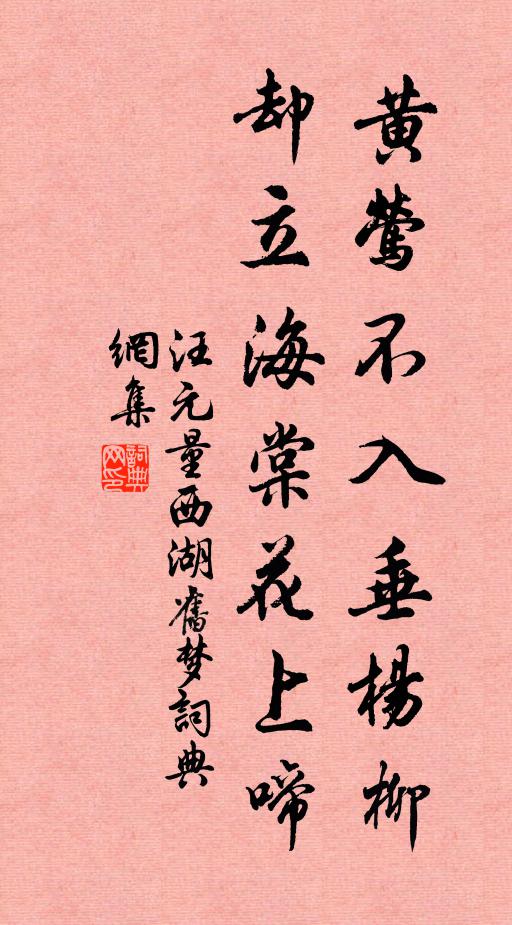 黄莺不入垂楊柳
却立海棠花上啼
汪元量西湖舊梦詞典
網集
詞典
网印